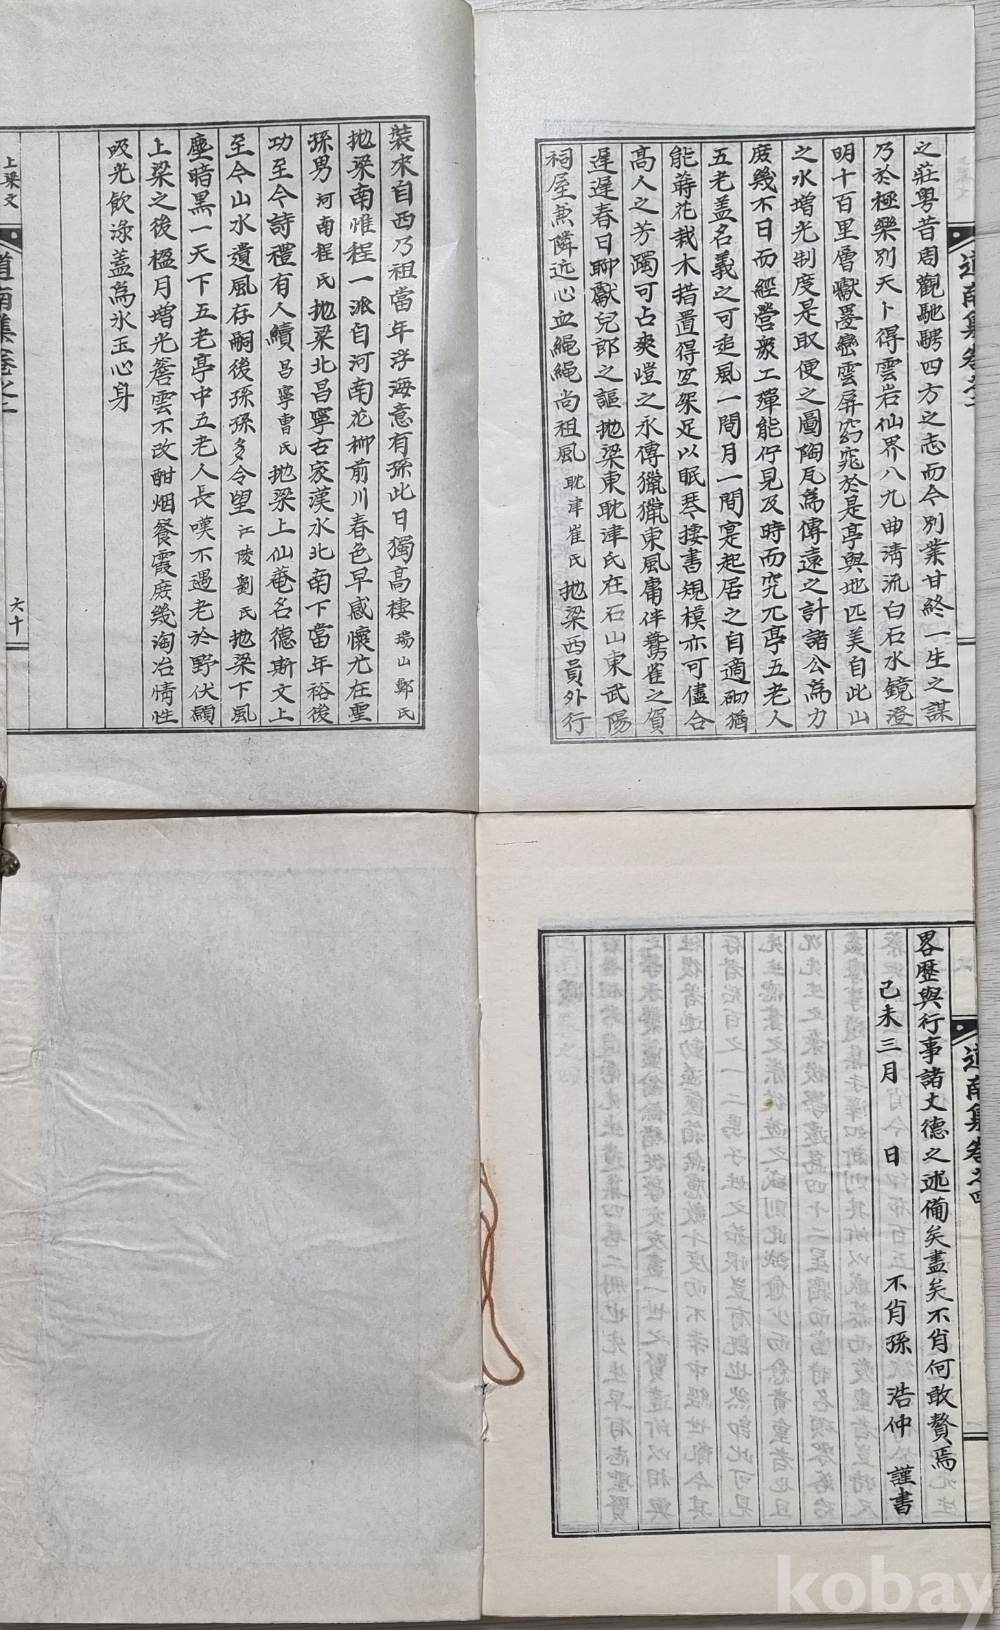 道南集卷之二
之莊粤昔周觀馳騁四方之志而今別業甘終一生之謀
乃於極樂別天卜得雲岩仙界八九曲淸流白石水鏡澄
明十百里層巘疊巒雲屛窈窕於是亭與地匹美自此山
之水增光制度是取便之圖陶瓦爲傳遠之計諸公爲力
庶幾不日而經營衆工殫能佇見及時而究兀亭五老人
五老盖名義之可追風一間月一間寔起居之自適砌猶
能蒔花栽木措置得宜架足以眠琴搂書規模亦可儘合
高人之芳躅可占爽嵦之永傳獵獵東風庸伴鷰雀之賀
遲遲春日聊獻兒郎之謳 抛梁東耽津氏在石山東武陽
祠屋兼隣近心血繩繩尙祖風 耽津崔氏 抛梁西員外行
裝來自西乃祖當年浮海意有孫此日獨高棲 瑞山鄭氏
抛梁南惟程一派自河南花柳前川春色早感懷尤在聖
孫男 河南程氏 抛梁北昌寧古家漢水北南下當年裕後
功至今詩禮有人續 昌寧曺氏 抛梁上仙菴名德斯文上
至今山水遺風存嗣後孫孫多令望 江陵劉氏 抛梁下風
塵暗黑一天下五老亭中五老人長嘆不遇老於野伏願
上梁之後楹月增光簷雲不改酣烟餐霞庶幾淘冶情性
吸光飮渌盖爲氷玉心身
上梁文
道南集卷之二
六十
道南集卷之四
畧歷與行事諸丈德之述備矣盡矣不肖何敢贅焉
己未三月 日 不肖孫 浩仲 謹書
kobay